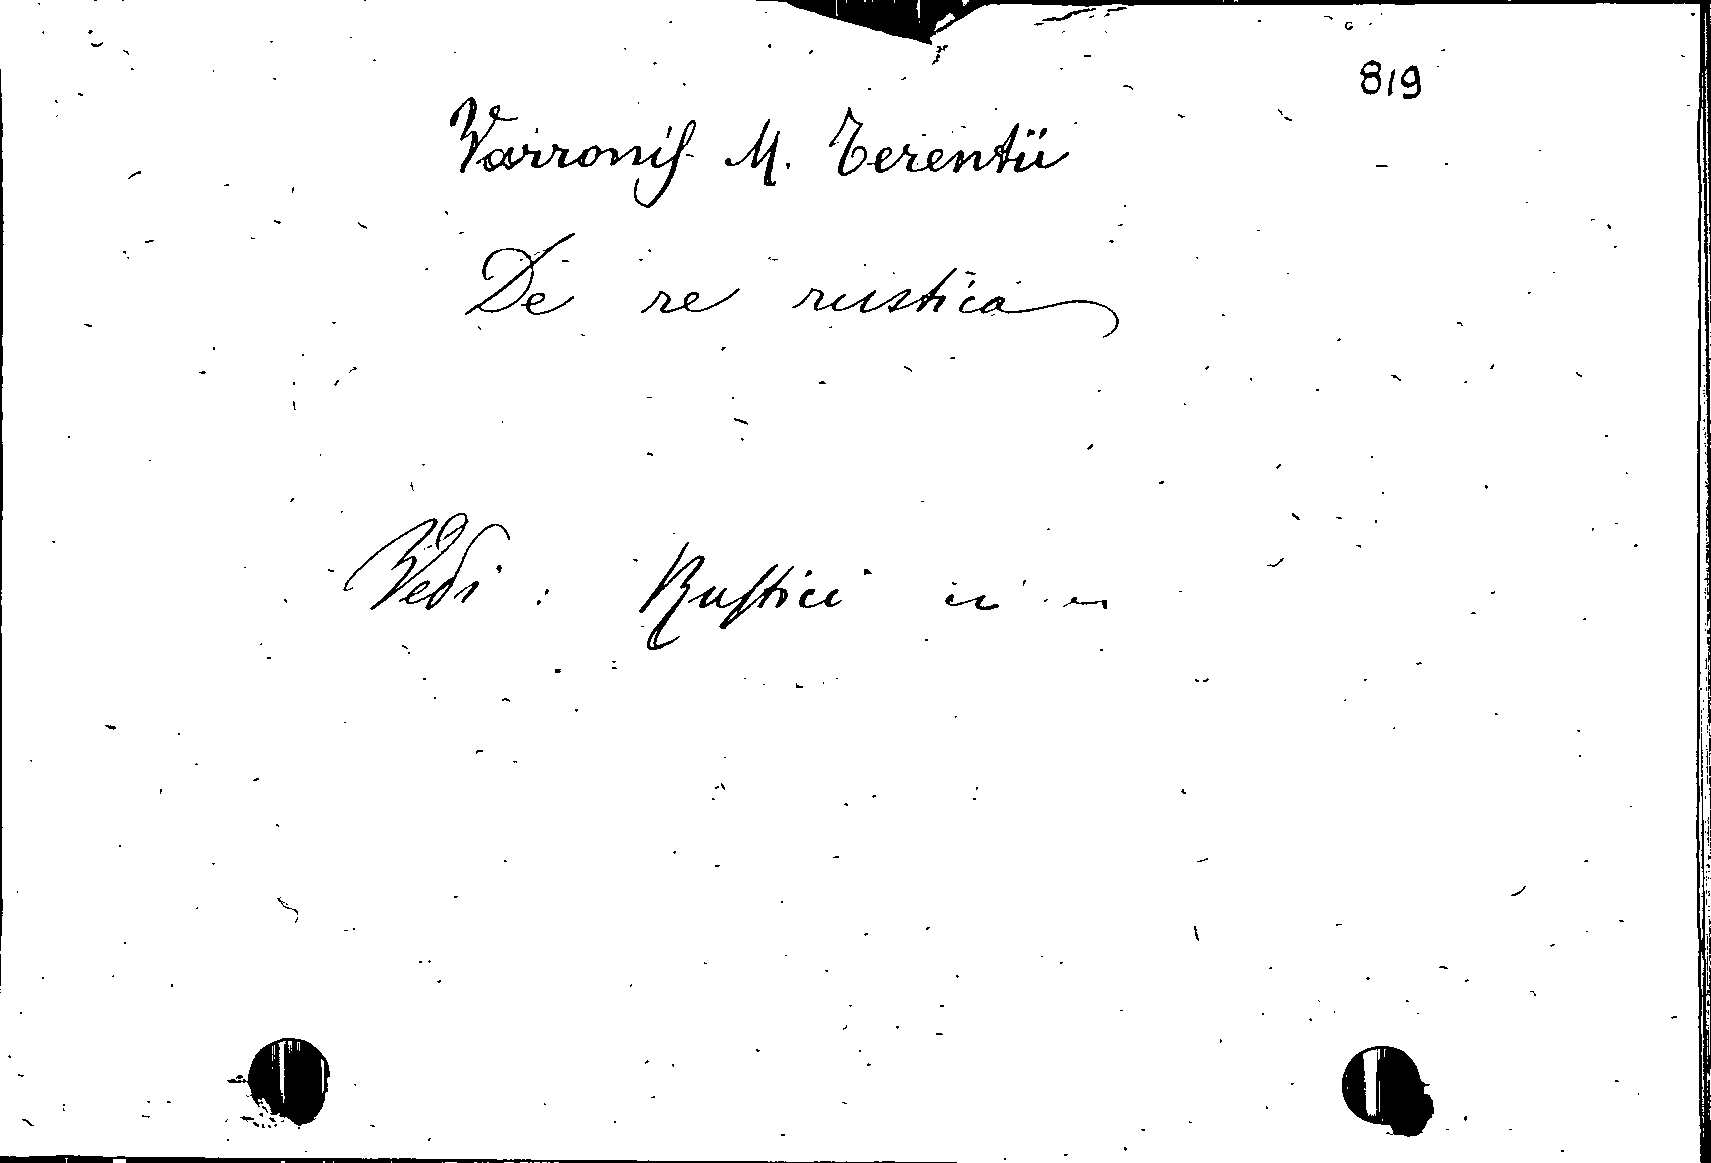 819
Varronis M. Terentii
De re rustica
Vedi: Rustici